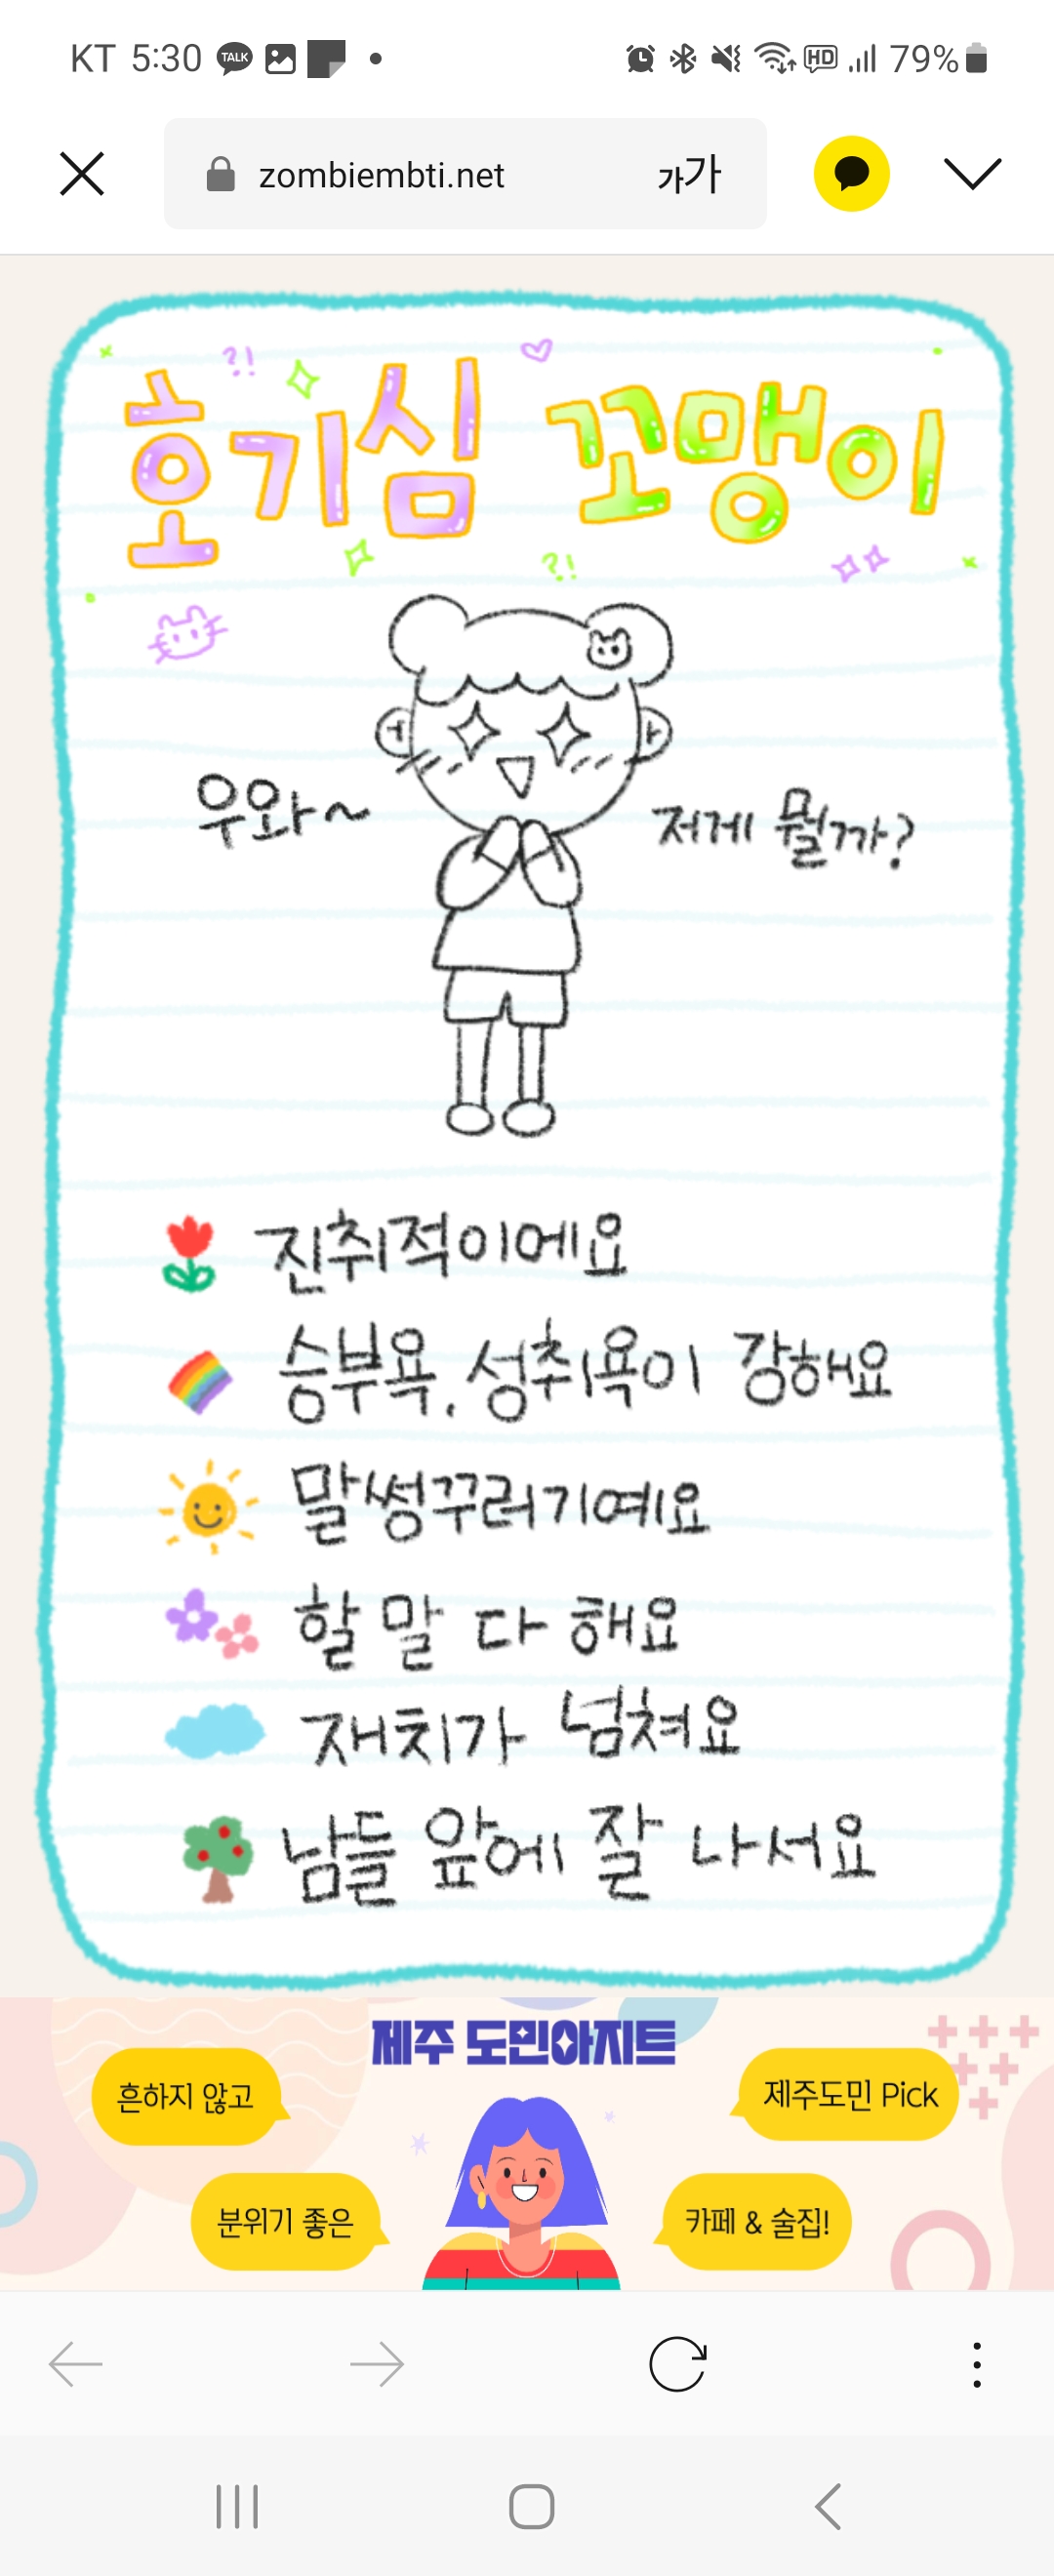 KT 5:30 TALK HD 79%
zombiembti.net 가가
?!
호기심 꼬맹이
?!
우와~ 저게 뭘까?
진취적이에요
승부욕, 성취욕이 강해요
말썽꾸러기예요
할 말 다 해요
재치가 넘쳐요
남들 앞에 잘 나서요
제주 도민아지트
흔하지 않고 제주도민 Pick
분위기 좋은 카페 & 술집!